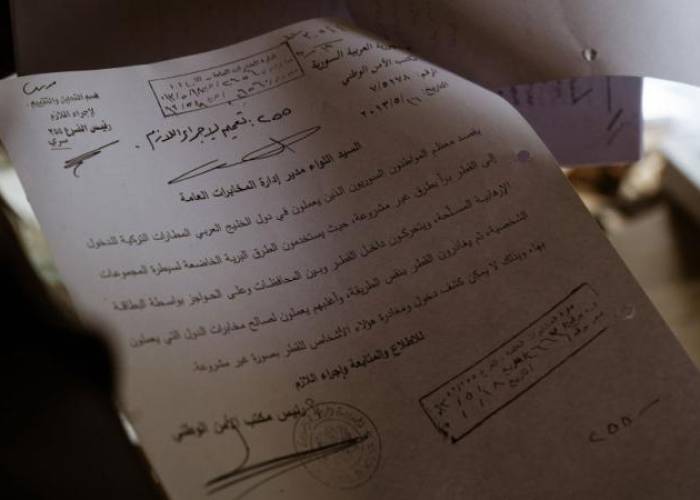 العربية السورية
مكتب الأمن الوطني
الرقم: ٧/٥٢٧٨
التاريخ: ٢٠١٣/٥/١٦
قسم التحليل والتقييم
لإجراء اللازم
رئيس الفرع ٢٥٥
سري
٢٥٥: تعميم لإجراء اللازم.
السيد اللواء مدير إدارة المخابرات العامة
يقصد معظم المواطنون السوريون الذين يعملون في دول الخليج العربي المطارات التركية للدخول
إلى القطر براً بطرق غير مشروعة، حيث يستخدمون الطرق البرية الخاضعة لسيطرة المجموعات
الإرهابية المسلحة، ويتحركون داخل القطر وبين المحافظات وعلى الحواجز بواسطة البطاقة
الشخصية، ثم يغادرون القطر بنفس الطريقة، وأغلبهم يعملون لصالح مخابرات الدول التي يعملون
بها، وبذلك لا يمكن كشف دخول ومغادرة هؤلاء الأشخاص للقطر بصورة غير مشروعة.
للاطلاع والمتابعة وإجراء اللازم
رئيس مكتب الأمن الوطني
٢٥٥